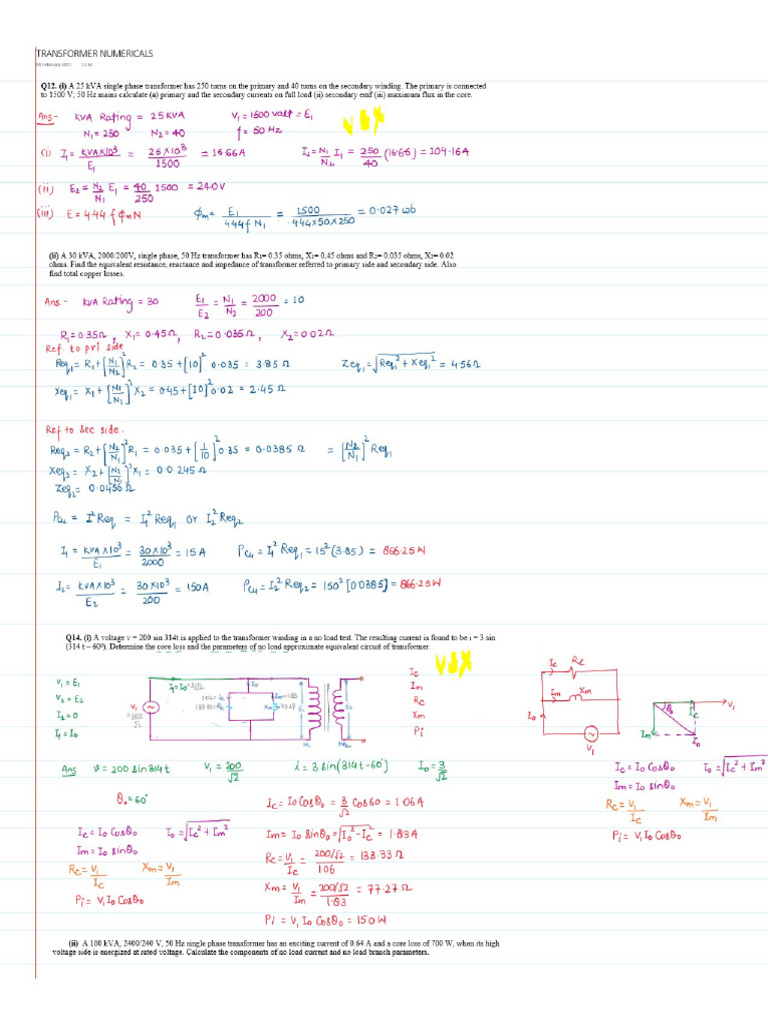 TRANSFORMER NUMERICALS
Q12. (i) A 25 kVA single phase transformer has 250 turns on the primary and 40 turns on the secondary winding. The primary is connected
to 1500 V; 50 Hz mains calculate (a) primary and the secondary currents on full load (ii) secondary emf (iii) maximum flux in the core.
Ans- KVA Rating = 25KVA V₁ = 1500 volt = E₁
N₁=250 N₂=40 f = 50 Hz
(i) I₁ = KVA×10³/E₁ = 25×10³/1500 = 16.66A I₂ = N₁/N₂ I₁ = 250/40 (16.66) = 104.16A
(ii) E₂ = N₂/N₁ E₁ = 40/250 1500 = 240V
(iii) E = 4.44 f ϕm N ϕm = E₁/4.44f N₁ = 1500/4.44×50×250 = 0.027 wb
(ii) A 30 kVA, 2000/200V, single phase, 50 Hz transformer has R₁= 0.35 ohms, X₁= 0.45 ohms and R₂= 0.035 ohms, X₂= 0.02
ohms. Find the equivalent resistance, reactance and impedance of transformer referred to primary side and secondary side. Also
find total copper losses.
Ans- KVA Rating = 30 E₁/E₂ = N₁/N₂ = 2000/200 = 10
R₁=0.35Ω, X₁=0.45Ω, R₂=0.035Ω, X₂=0.02Ω
Ref. to pri side
Req₁ = R₁+[N₁/N₂]²R₂ = 0.35+[10]² 0.035 = 3.85 Ω Zeq₁ = √Req₁² + Xeq₁² = 4.56Ω
Xeq₁ = X₁+[N₁/N₂]²X₂ = 0.45+[10]²0.02 = 2.45Ω
Ref to sec side.
Req₂ = R₂+[N₂/N₁]²R₁ = 0.035+[1/10]²0.35 = 0.0385 Ω = [N₂/N₁]² Req₁
Xeq₂ = X₂+[N₂/N₁]²X₁ = 0.0245Ω
Zeq₂ = 0.0456Ω
Pcu = I²Req = I₁²Req₁ or I₂²Req₂
I₁ = KVA×10³/E₁ = 30×10³/2000 = 15A Pcu = I₁²Req₁ = 15²(3.85) = 866.25W
I₂ = KVA×10³/E₂ = 30×10³/200 = 150A Pcu = I₂²Req₂ = 150²[0.0385] = 866.25W
Q14. (i) A voltage v = 200 sin 314t is applied to the transformer winding in a no load test. The resulting current is found to be i = 3 sin
(314 t – 60⁰). Determine the core loss and the parameters of no load approximate equivalent circuit of transformer.
V₁ = E₁
V₂ = E₂
I₂ = 0
I₁ = I₀
Ic
Im
Rc
Xm
Pi
Ic Rc
Im Xm
I₀
V₁
θ₀ Ic V₁
Im I₀
Ans v = 200 sin314t V₁ = 200/√2 i = 3 sin(314t-60°) I₀ = 3/√2
θ₀ = 60°
Ic = I₀ Cosθ₀ I₀ = √Ic² + Im²
Im = I₀ sinθ₀
Rc = V₁/Ic Xm = V₁/Im
Pi = V₁ I₀ Cosθ₀
Ic = I₀ Cosθ₀ = 3/√2 Cos60 = 1.06A
Im = I₀ sinθ₀ = √I₀² - Ic² = 1.83A
Rc = V₁/Ic = 200/√2/1.06 = 133.33Ω
Xm = V₁/Im = 200/√2/1.83 = 77.27Ω
Pi = V₁ I₀ Cosθ₀ = 150W
Ic = I₀ Cosθ₀ I₀ = √Ic² + Im²
Im = I₀ Sinθ₀
Rc = V₁/Ic Xm = V₁/Im
Pi = V₁ I₀ Cosθ₀
(ii) A 100 kVA, 2400/240 V, 50 Hz single phase transformer has an exciting current of 0.64 A and a core loss of 700 W, when its high
voltage side is energized at rated voltage. Calculate the components of no load current and no load branch parameters.